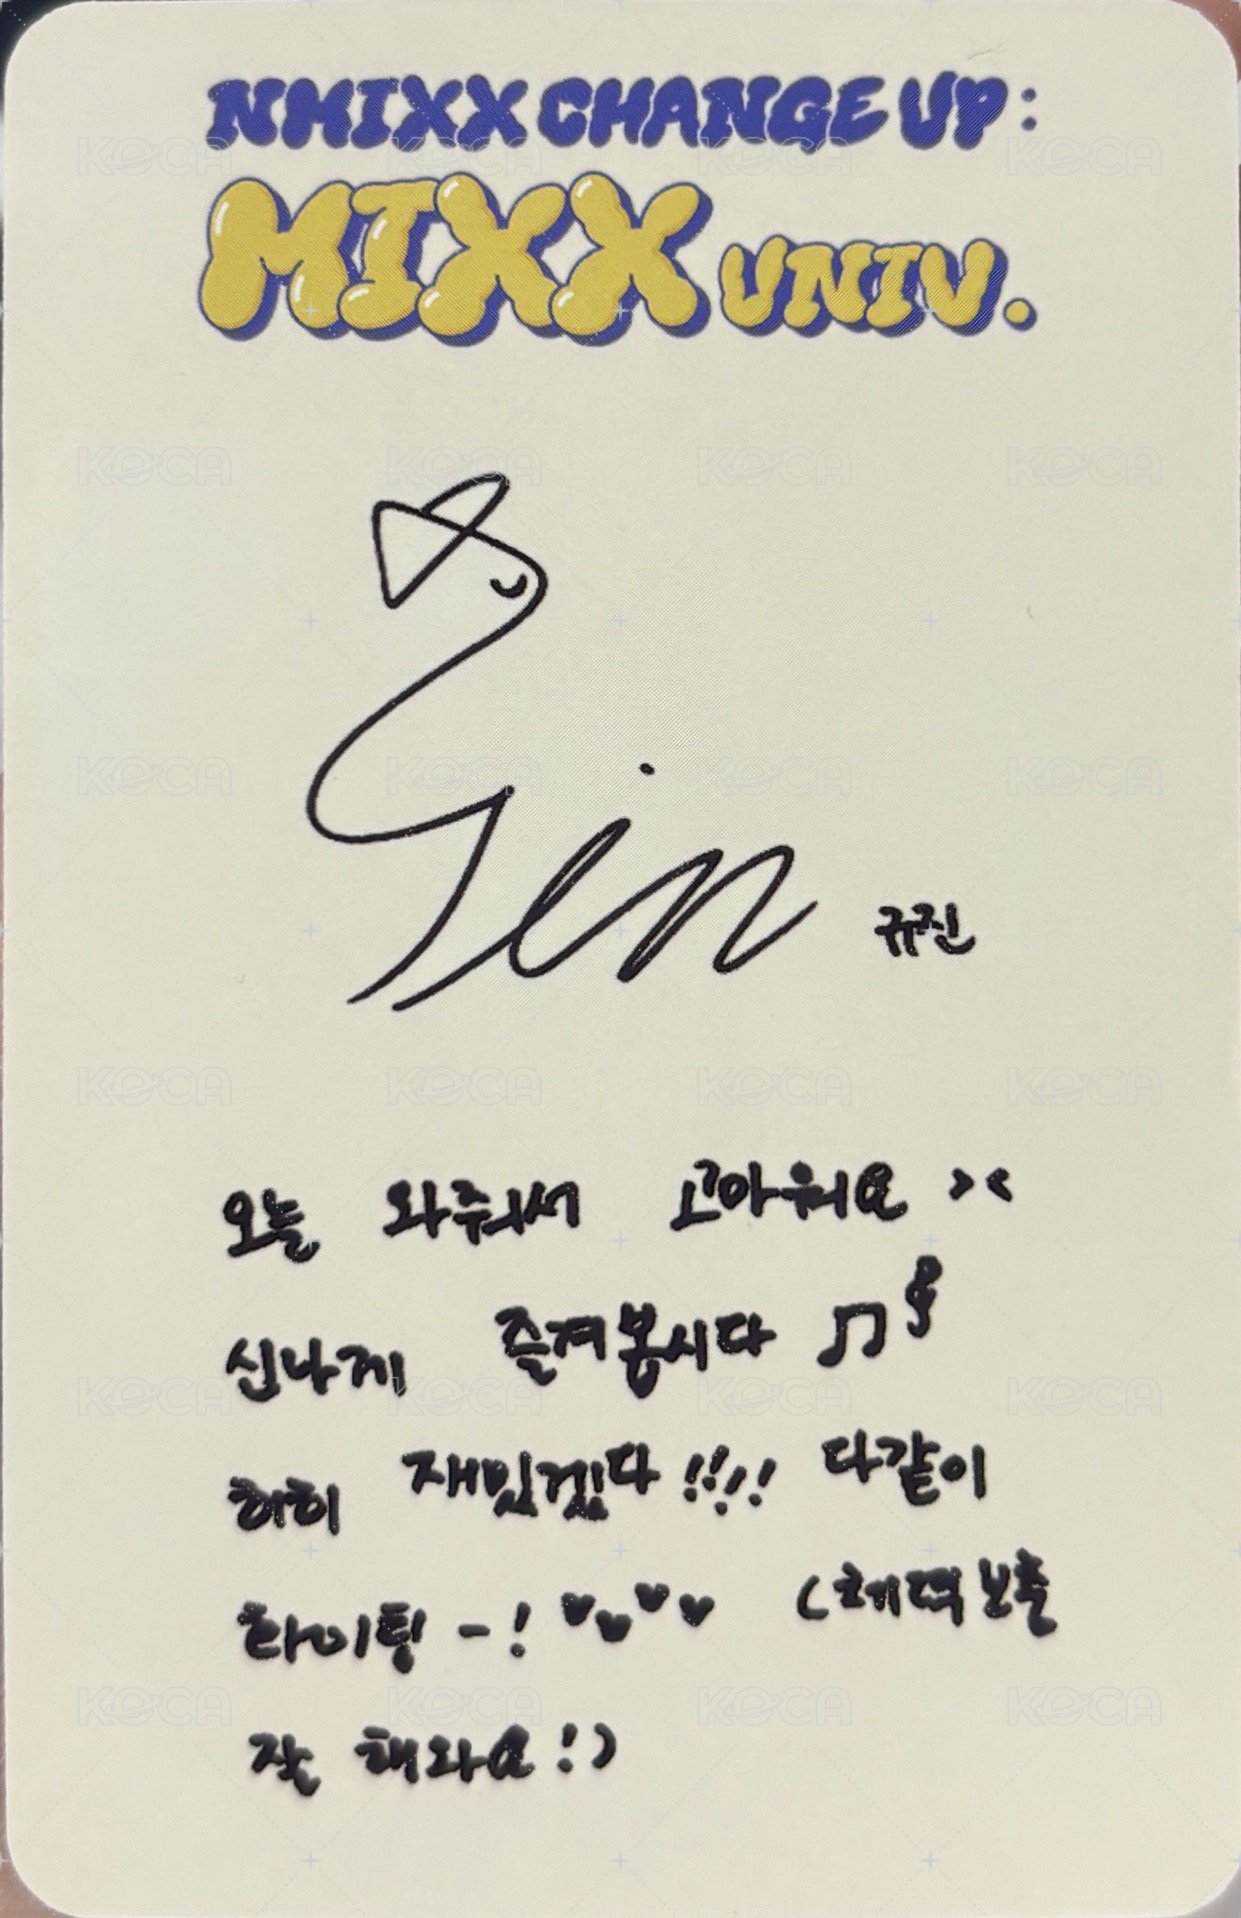 NMIXX CHANGE UP:
MIXX UNIV.
Jin 규진
오늘 와줘서 고마워요 ><
신나게 즐겨봅시다 ♫
히히 재밌겠다!!!! 다같이
화이팅-! ♥♥♥♥ (체력보충
잘 해와요!)
KOCA